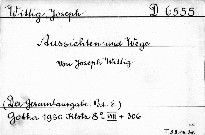 Wittig Joseph D 6555
Aussichten und Wege
von Joseph Wittig
(Der Gesamtausgabe Bd. 6.)
Gotha 1930 Klotz 8° VIII + 306